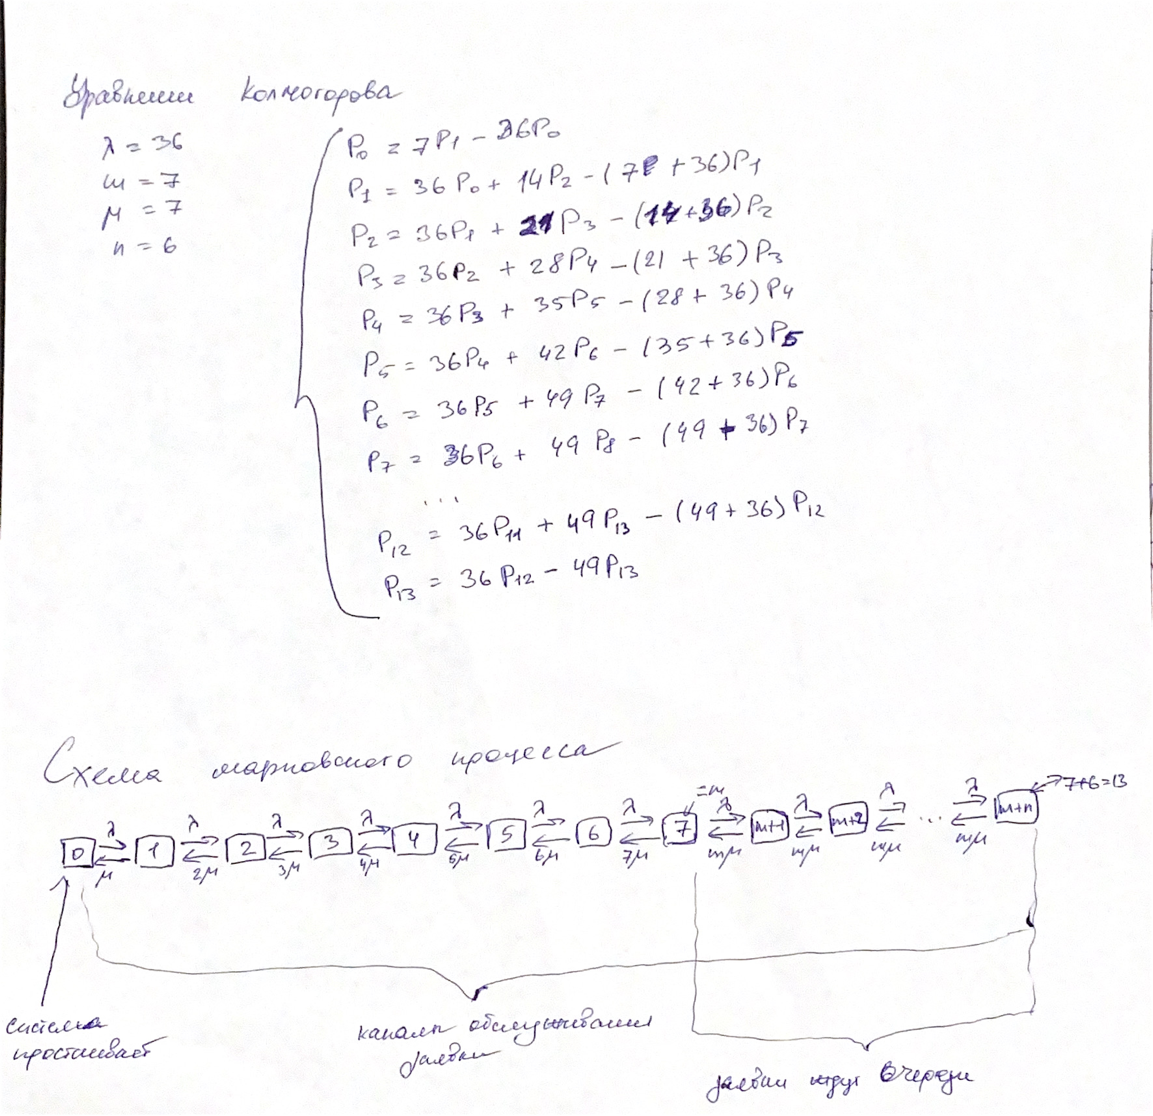 Уравнения Колмогорова
λ = 36
m = 7
μ = 7
n = 6
P₀ = 7P₁ - 36P₀
P₁ = 36P₀ + 14P₂ - (7 + 36)P₁
P₂ = 36P₁ + 21P₃ - (14 + 36)P₂
P₃ = 36P₂ + 28P₄ - (21 + 36)P₃
P₄ = 36P₃ + 35P₅ - (28 + 36)P₄
P₅ = 36P₄ + 42P₆ - (35 + 36)P₅
P₆ = 36P₅ + 49P₇ - (42 + 36)P₆
P₇ = 36P₆ + 49P₈ - (49 + 36)P₇
...
P₁₂ = 36P₁₁ + 49P₁₃ - (49 + 36)P₁₂
P₁₃ = 36P₁₂ - 49P₁₃
Схема марковского процесса
=m
7+6=13
λ λ λ λ λ λ λ λ λ λ λ
0 1 2 3 4 5 6 7 m+1 m+2 ... m+n
μ 2μ 3μ 4μ 5μ 6μ 7μ mμ mμ mμ mμ
система
простаивает
каналы обслуживания
заявки
заявки ждут очереди